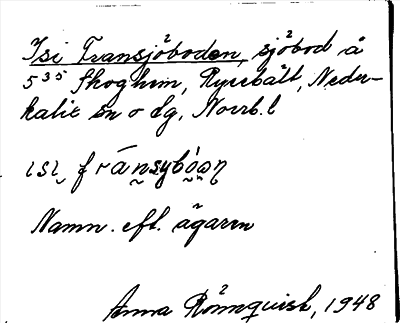 Isi Fransjöboden, sjöbod å
535 Skoghem, Ryssbält, Neder-
kalix sn o dg, Norrb. l
Namn. eft. ägaren
Anna Rönnquist, 1948